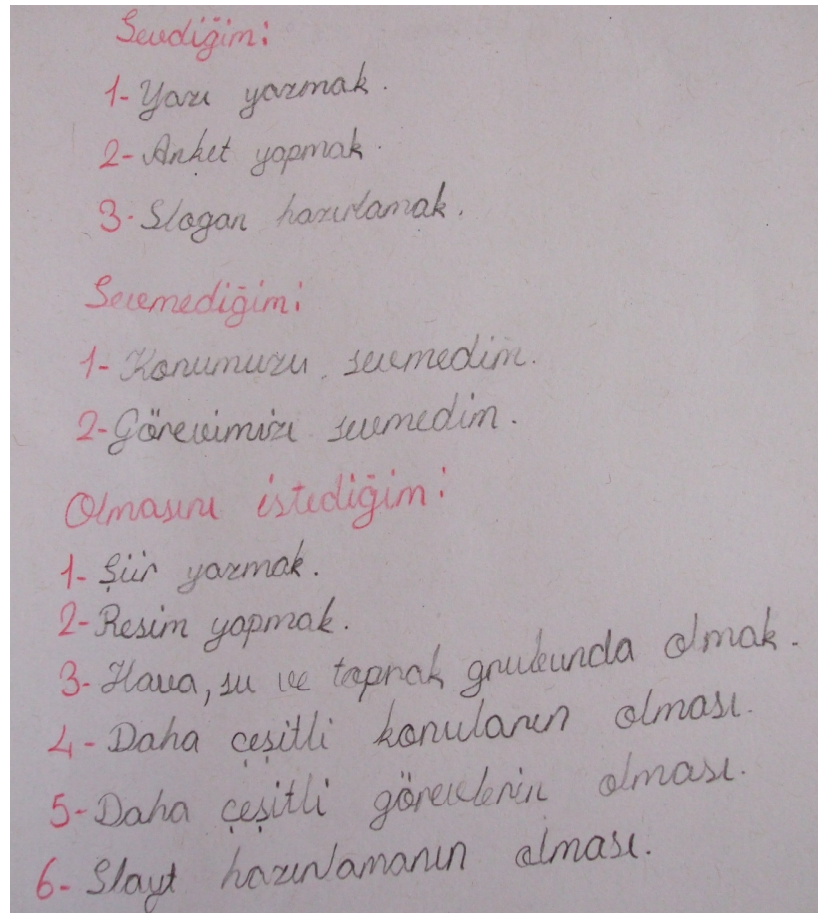 Sevdiğim:
1- Yazı yazmak.
2- Anket yapmak.
3- Slogan hazırlamak.
Sevmediğim:
1- Konumuzu sevmedim.
2- Görevimizi sevmedim.
Olmasını istediğim:
1- Şiir yazmak.
2- Resim yapmak.
3- Hava, su ve toprak grubunda olmak.
4- Daha çeşitli konuların olması.
5- Daha çeşitli görevlerin olması.
6- Slayt hazırlamanın olması.